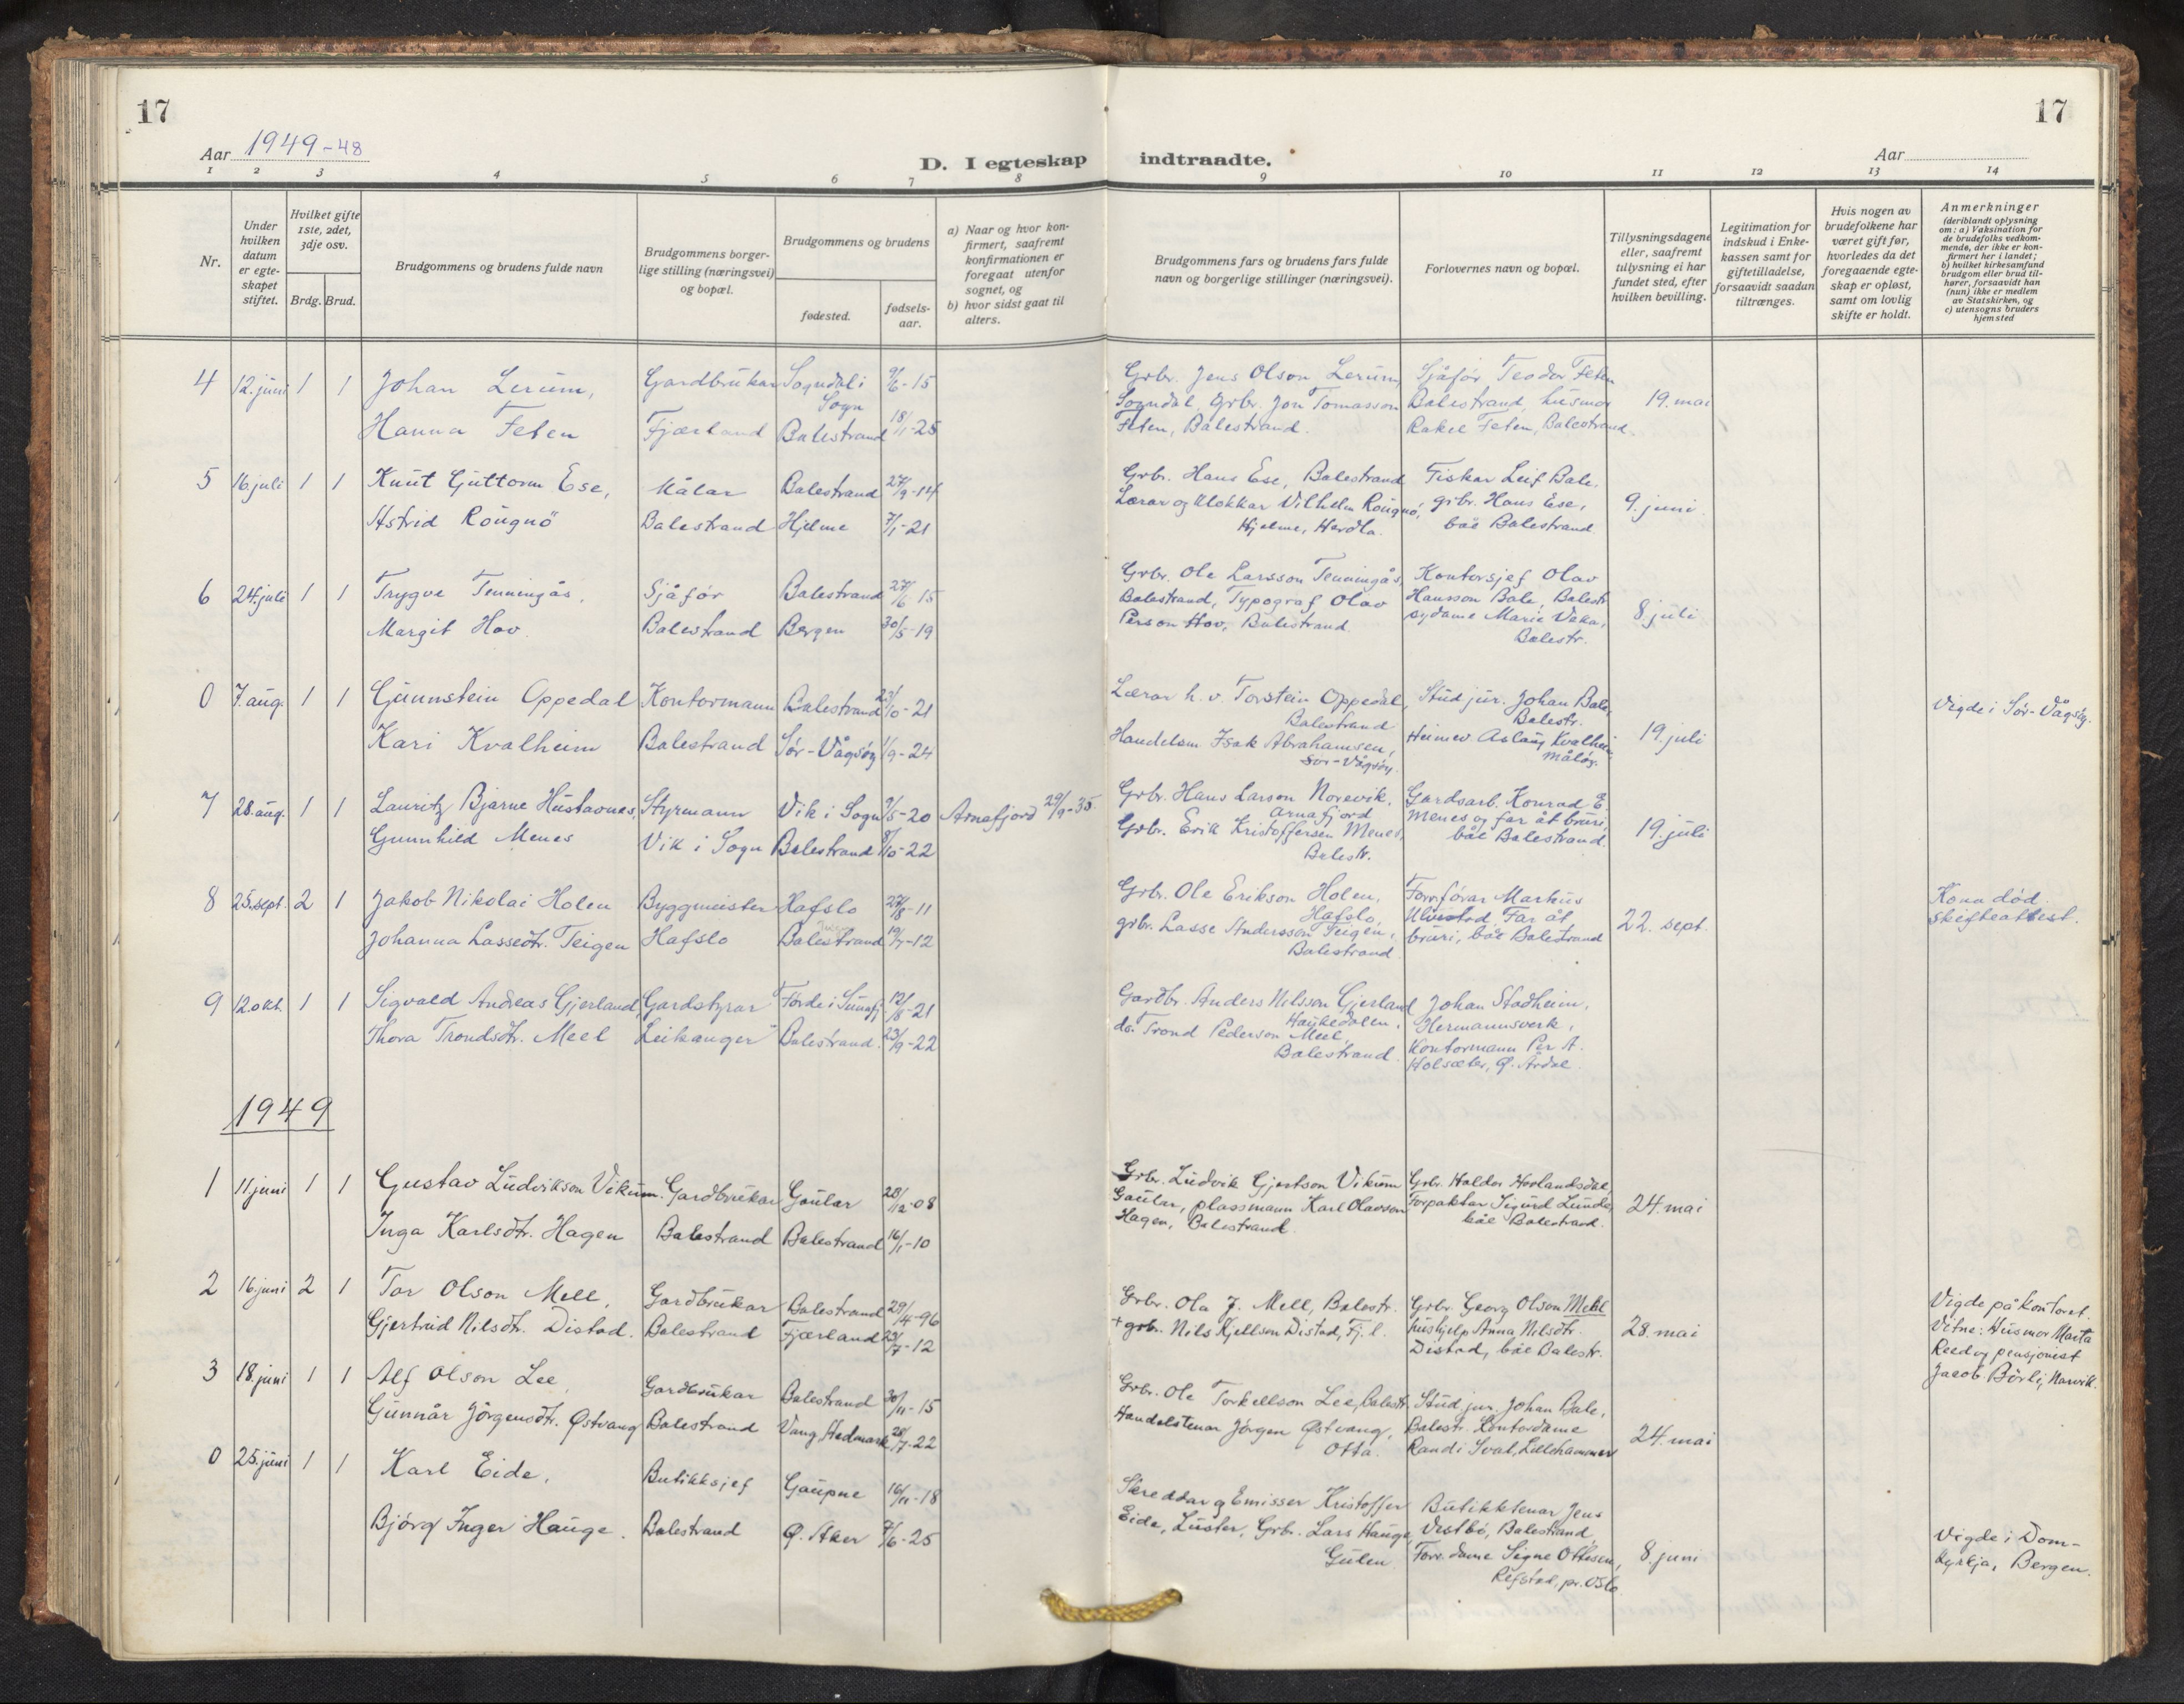 17
17
Aar 1949-48
D. I egteskap indtraadte.
Aar
1 2 3 4 5 6 7 8 9 10 11 12 13 14
Nr.
Under hvilken datum er egteskapet stiftet.
Hvilket gifte 1ste, 2det, 3dje osv.
Brdg. Brud.
Brudgommens og brudens fulde navn
Brudgommens borgerlige stilling (næringsvei) og bopæl.
Brudgommens og brudens
fødested.
fødselsaar.
a) Naar og hvor konfirmert, saafremt konfirmationen er foregaat utenfor sognet, og
b) hvor sidst gaat til alters.
Brudgommens fars og brudens fars fulde navn og borgerlige stillinger (næringsvei).
Forlovernes navn og bopæl.
Tillysningsdagene eller, saafremt tillysning ei har fundet sted, efter hvilken bevilling.
Legitimation for indskud i Enkekassen samt for giftetilladelse, forsaavidt saadan tiltrænges.
Hvis nogen av brudefolkene har været gift før, hvorledes da det foregaaende egteskap er opløst, samt om lovlig skifte er holdt.
Anmerkninger
(deriblandt oplysning om: a) Vaksination for de brudefolks vedkommende, der ikke er konfirmert her i landet;
b) hvilket kirkesamfund brudgom eller brud tilhører, forsaavidt han (hun) ikke er medlem av Statskirken, og
c) utensogns bruders hjemsted
4 12. juni 1 1 Johan Lerum, Gardbrukar Sogndal i Sogn 9/6-15
Hanna Feten Fjærland Balestrand 18/1-25
Grbr. Jens Olson Lerum,
Sogndal, Grbr. Jon Tomasson
Feten, Balestrand.
Sjåför Teodor Feten
Balestrand, husmor
Rakel Feten, Balestrand.
19. mai
5 16. juli 1 1 Knut Guttorm Ese, Målar Balestrand 27/9-14
Astrid Rongnö Balestrand Hjelme 7/1-21
Grbr. Hans Ese, Balestrand
Lærar og klokkar Vilhelm Rongnö,
Hjelme, Herdla.
Fiskar Leif Bale,
grbr. Hans Ese,
båe Balestrand.
9. juni
6 24. juli 1 1 Trygve Tenningås, Sjåför Balestrand 27/6-15
Margit Hov. Balestrand Bergen 30/5-19
Grbr. Ole Larsson Tenningås,
Balestrand, Typograf Olav
Person Hov, Balestrand.
Kontorsjef Olav
Hansson Bale, Balestr.
sydame Marie
Balestr.
8. juli
0 7. aug. 1 1 Gunnstein Oppedal Kontormann Balestrand 23/10-21
Kari Kvalheim Balestrand Sör-Vågsöy 1/9-24
Lærar h. v. Torstein Oppedal,
Balestrand
Handelsm. Isak Abrahamsen,
Sör-Vågsöy.
Stud jur. Johan Bale,
Balestr.
Heimev. Aslaug Kvalheim
Målöy.
19. juli
Vigde i Sör-Vågsöy.
7 28. aug. 1 1 Lauritz Bjarne Hustavnes, Styrmann Vik i Sogn 9/5-20 Arnafjord 29/9-35.
Gunnhild Menes Vik i Sogn Balestrand 8/10-22
Grbr. Hans Larson Norevik,
Arnafjord
Grbr. Erik Kristoffersen Menes,
Balestr.
Gardsarb. Konrad E.
Menes og far åt bruri,
båe Balestrand.
19. juli
8 25. sept. 2 1 Jakob Nikolai Holen Byggmeister Hafslo 27/8-11
Johanna Lassedtr. Teigen Hafslo Balestrand 19/7-12
Grbr. Ole Erikson Holen,
Hafslo,
grbr. Lasse Andersson Teigen,
Balestrand
Forrförar Markus
Ulvestad, Far åt
bruri, båe Balestrand
22. sept.
Kona död.
skifteattest.
9 12. okt. 1 1 Sigvald Andreas Gjerland, Gardstyrar Förde i Sunnfj. 12/8-21
Thora Trondsdtr. Meel Leikanger Balestrand. 23/9-22
Gardbr. Anders Nilsson Gjerland
Haukedalen,
do. Trond Pederson Meel,
Balestrand.
Johan Stadheim,
Hermannsverk,
Kontormann Per A.
Holsæter, Ø. Årdal.
1949
1 11. juni 1 1 Gustav Ludvikson Vikum. Gardbrukar Gaular 28/12-08
Inga Karlsdtr. Hagen Balestrand Balestrand 16/1-10
Grbr. Ludvik Gjertson Vikum
Gaular, plassmann Karl Olavson
Hagen, Balestrand.
Grbr. Haldor Hovlandsdal,
Forpaktar Sigurd Lunde,
båe Balestrand.
24. mai
2 16. juni 2 1 Tor Olson Mell, Gardbrukar Balestrand 29/4-96
Gjertrud Nilsdtr. Distad. Balestrand Fjærland 23/7-12
Grbr. Ola J. Mell, Balestr.
+ grbr. Nils Kjellson Distad, Fj. l.
Grbr. Georg Olson Mell
hushjelp Anna Nilsdtr.
Distad, båe Balestr.
28. mai
Vigde på kontoret.
Vitne: Husmor Marta
Reed og pensjonist
Jacob Börli, Narvik.
3 18. juni 1 1 Alf Olson Lee, Gardbrukar Balestrand 30/11-15
Gunnår Jörgensdtr. Östvang Balestrand Vang, Hedmark 28/7-22
Grbr. Ole Torkellson Lee, Balestr.
Handelstenar Jörgen Östvang,
Otta.
Stud. jur. Johan Bale,
Balestr. Kontordame
Randi Sval, Lillehammer
24. mai
0 25. juni 1 1 Karl Eide, Butikksjef Gaupne 16/11-18
Björg Inger Hauge. Balestrand Ø. Aker 7/6-25
Skreddar og Emissær Kristoffer
Eide, Luster, Grbr. Lars Hauge,
Gulen
Butikktenar Jens
Vestbö, Balestrand
Forr. dame Signe Ottesen,
Refstad, pr. Oslo.
8. juni
Vigde i Dom-
kyrkja, Bergen.